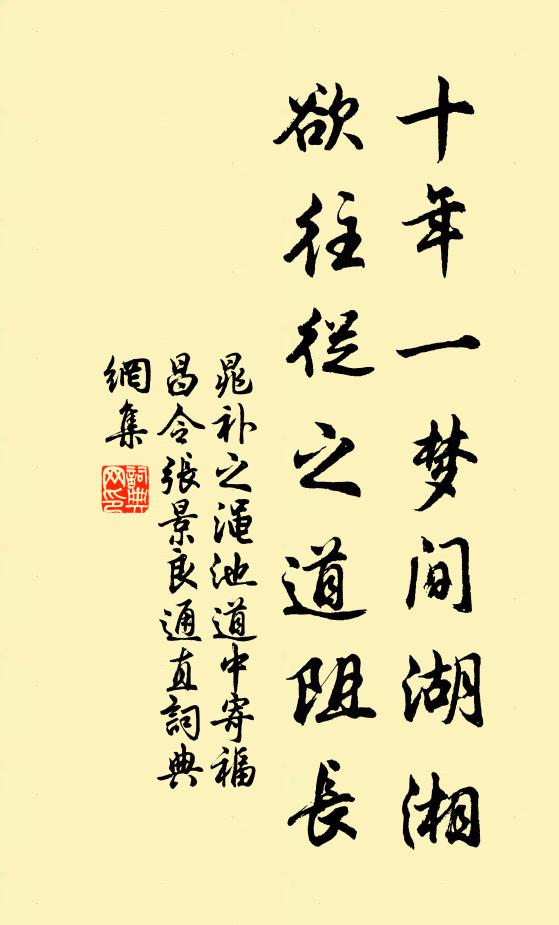 十年一梦间湖湘
欲往從之道阻長
晁补之渑池道中寄福
昌令张景良通直词典
網集
詞典
网印